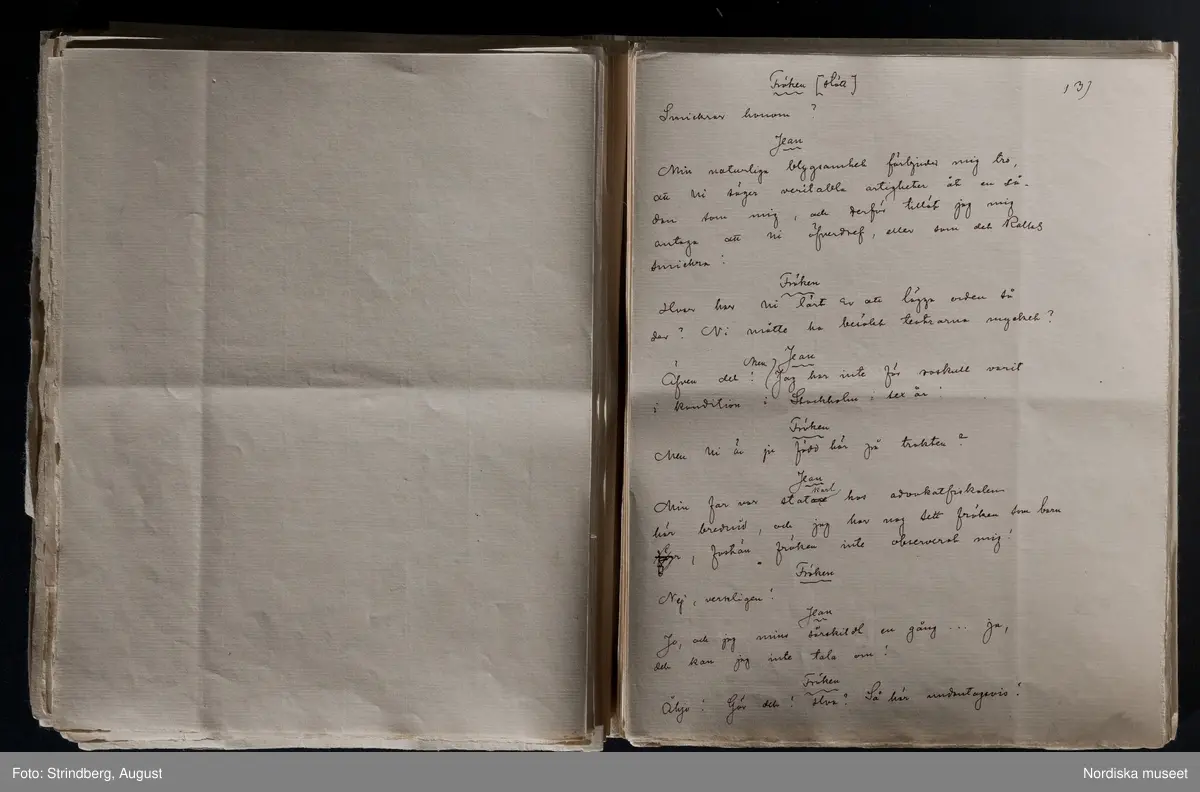 Fröken [slött]
13)
Smickrar honom?
Jean
Min naturliga blygsamhet förbjuder mig tro,
att Ni säger veritabla artigheter åt en så-
dan som mig, och derför tillät jag mig
antaga att Ni öfverdref, eller som det kallas
smickra!
Fröken
Hvar har Ni lärt Er att lägga orden så
der? Ni måtte ha besökt teatrarna mycket?
Jean
Äfven det! Men Jag har inte för roskull varit
i kondition i Stockholm, sex år!
Fröken
Men Ni är ju född här på trakten?
Jean
Min far var statkarl hos advokatfiskalen
här bredvid, och jag har nog sett fröken som barn
, fastän fröken inte observerat mig!
Fröken
Nej, verkligen!
Jean
Jo, och jag mins särskildt en gång ... ja,
det kan jag inte tala om!
Fröken
Åhjo! Gör det! Hva? Så här undantagsvis!
Foto: Strindberg, August
Nordiska museet